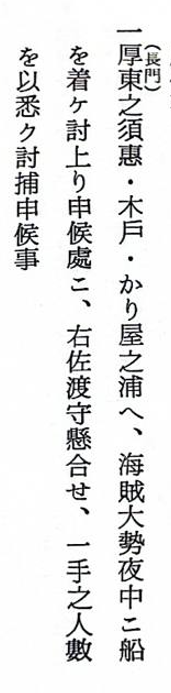 (長門)
一厚東之須惠・木戸・かり屋之浦へ、海賊大勢夜中ニ船
を着ケ討上り申候處ニ、右佐渡守懸合せ、一手之人數
を以悉ク討捕申候事